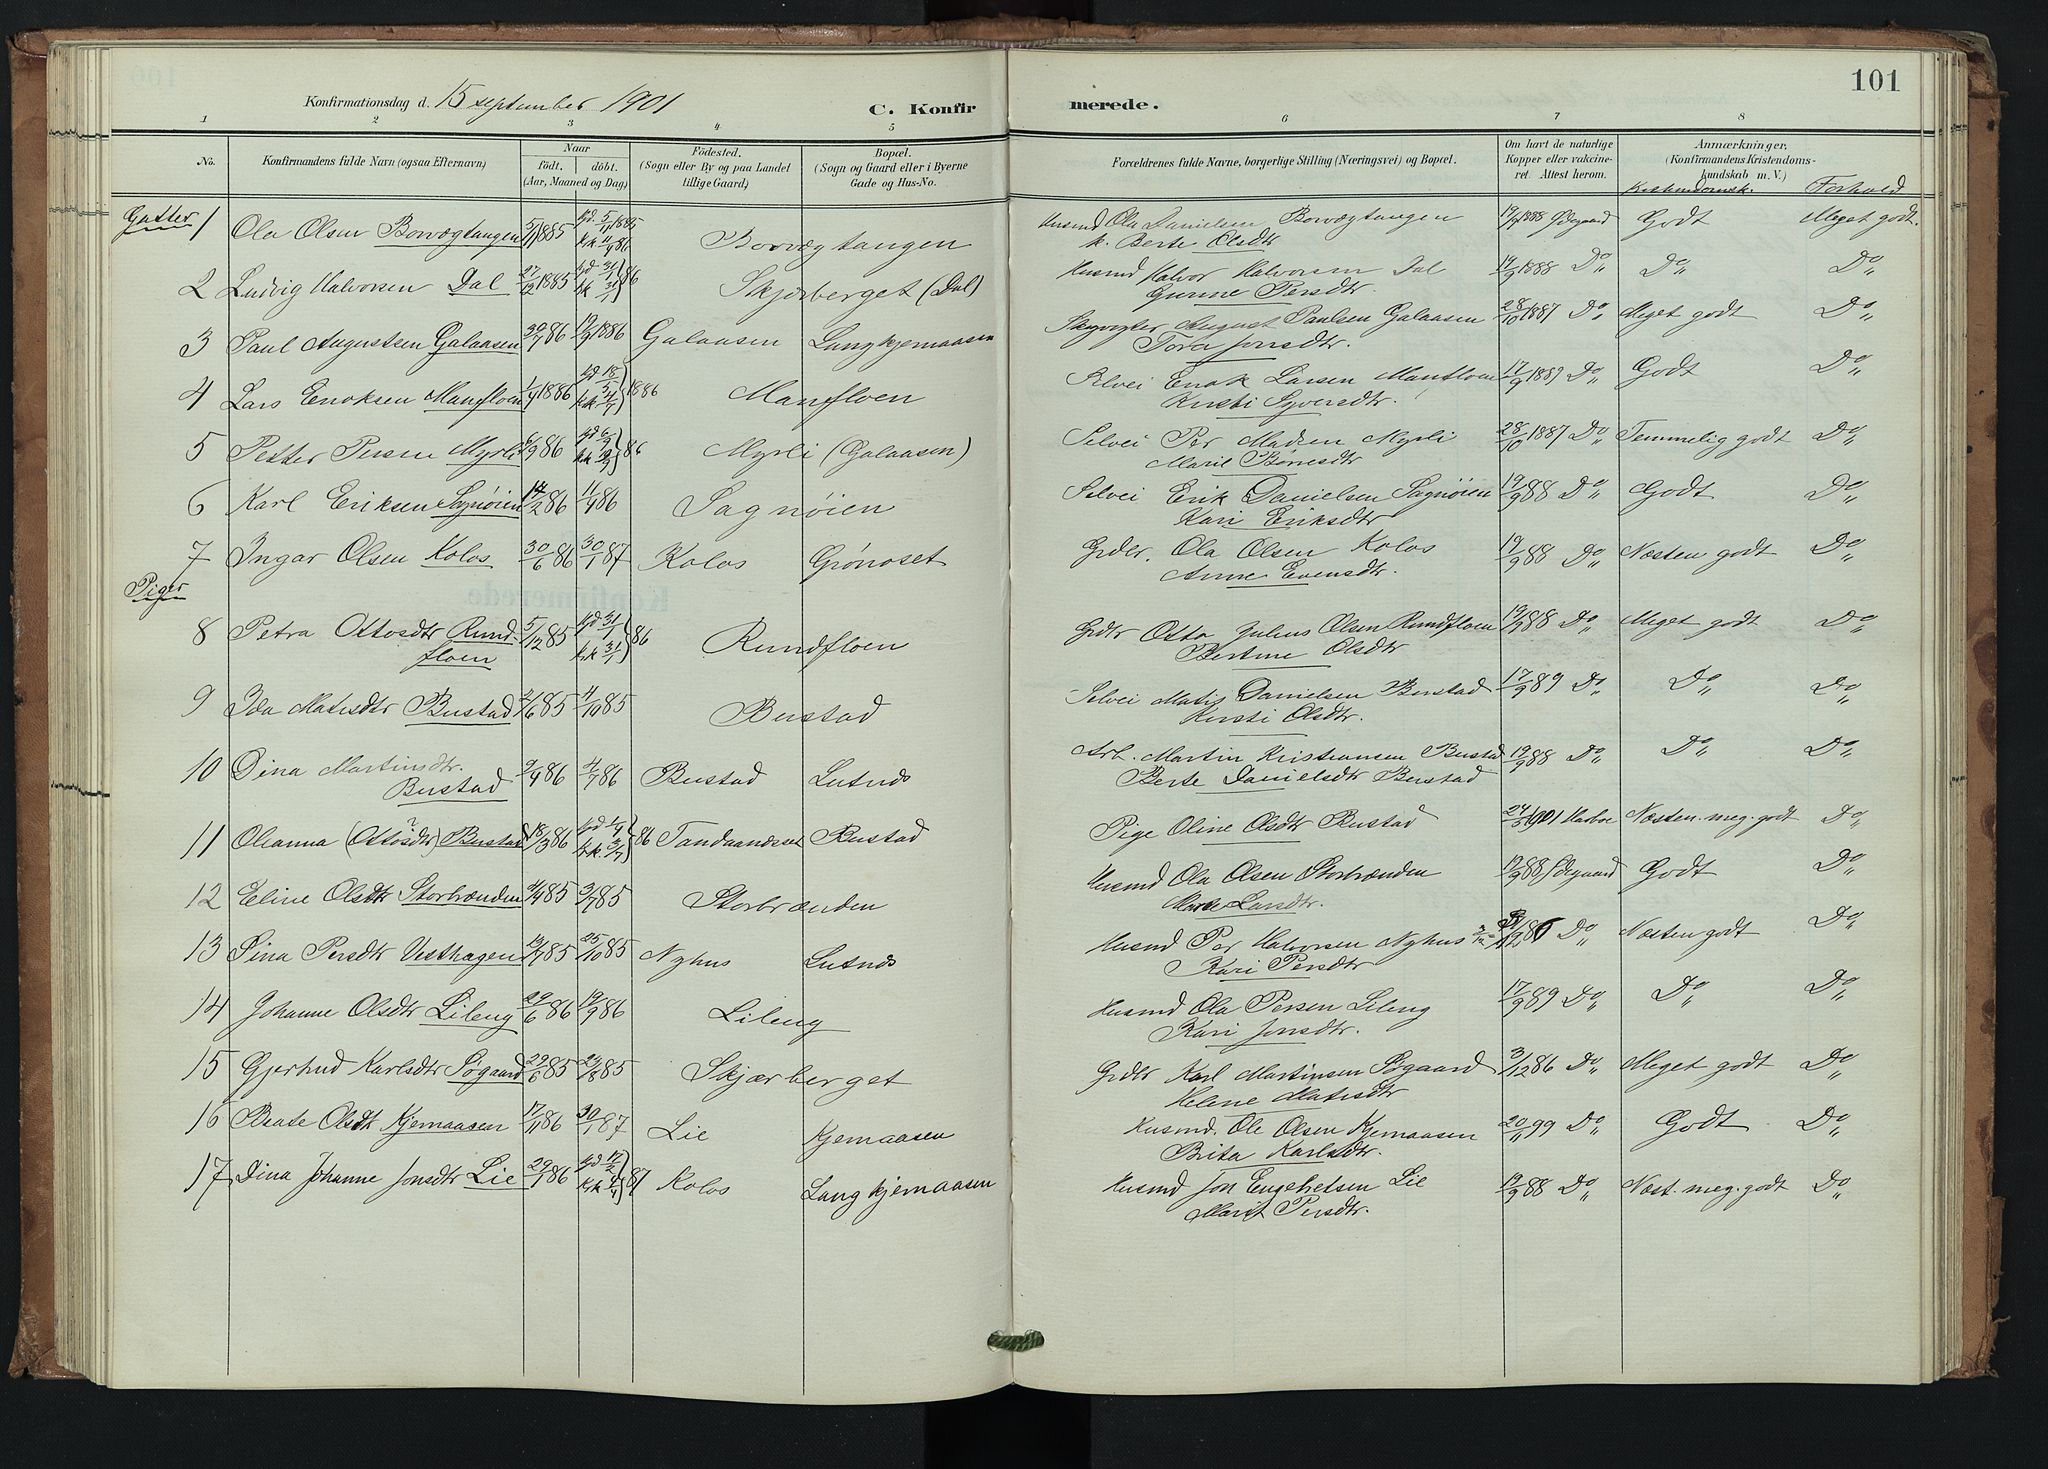 Konfirmationsdag d. 15 september 1901
C. Konfirmerede.
101
1 2 3 4 5 6 7 8
No. Konfirmandens fulde Navn (ogsaa Efternavn) Naar födt. döbt. (Aar, Maaned og Dag) Födested. (Sogn eller By og paa Landet tillige Gaard) Bopæl. (Sogn og Gaard eller i Byerne Gade og Hus-No. Forældrenes fulde Navne, borgerlige Stilling (Næringsvei) og Bopæl. Om havt de naturlige Kopper eller vakcineret. Attest herom. Anmærkninger. (Konfirmandens Kristendomskundskab m. V.)
Kristendomsk. Forhold
Gutter
1 Ola Olsen 5/11 1885 hd 5/11 1885 Husmd Ola Danielsen 19/9 1888 Ødegaard Godt Meget godt.
k. Berte Olsdtr
2 Ludvig Halvorsen Dal 27/12 1885 hd 31/1 kk 31/1 86 Skjærberget (Dal) Husmd Halvor Halvorsen Dal 19/9 1888 Do Do Do
Gunne Persdtr.
3 Paul Augustsen Galaasen 30/7 86 19/9 1886 Galaasen Langkjemaasen August Paulsen Galaasen 28/10 1887 Do Meget godt Do
Tora Jonsdtr.
4 Lars Eriksen Manfloen 1/4 1886 1886 Manfloen Selvei Larsen Manfloen 17/9 1889 Do Godt Do
Kersti Syversdtr.
5 Petter Persen Myrli 6/9 86 86 Myrli (Galaasen) Selvei Per Madsen Myrli 28/10 1887 Do Temmelig godt Do
Marit
6 Karl Eriksen Sagnøien 14/2 86 11/4 86 Sagnøien Selvei Erik Danielsen Sagnøien 19/9 88 Do Godt Do
Kari Eriksdtr
7 Ingar Olsen Kolos 30/6 86 30/1 87 Kolos Grønoset Grder. Ola Olsen Kolos 19/9 88 Do Næsten godt Do
Anne Evensdtr.
Piger
8 Petra Ottosdtr Rund- 5/12 85 hd 31/1 kk 31/1 86 Rundfloen Grder Otto Julius Olsen Rundfloen 19/9 88 Do Meget godt Do
floen Bertine Olsdtr
9 Ida Matisdtr Bustad 2/6 85 4/10 85 Bustad Selvei Matis Danielsen Bustad 17/9 89 Do Do Do
Kersti Olsdtr.
10 Dina Martinsdtr. 86 4/7 86 Bustad Lutnes Arb. Martin Kristiansen Bustad 19/9 88 Do Do Do
Bustad Berte Danielsdtr Bustad
11 Oleanna (Ottosdtr)? Bustad 18/3 86 86 Tandaandset Bustad Pige Oline Olsdtr Bustad 24/5 1901 Harboe Næsten meg. godt Do
12 Eline Olsdtr Storbrænden 85 3/7 85 Storbrænden Husmd Ola Olsen Storbrænden 19/9 88 Ødegaard Godt Do
Larsdtr.
13 Sina Persdtr Vesthagen 85 25/10 85 Nyhus Lutnes Husmd Per Halvorsen Nyhus Do Næsten godt Do
Kari Persdtr
14 Johanne Olsdtr Lileng 29/6 86 19/9 86 Lileng Husmd Ola Persen Lileng 17/9 89 Do Do Do
Kari Jonsdtr.
15 Gjertrud Karlsdtr Søgaard 29/6 85 85 Skjærberget Grder Karl Martinsen Søgaard 3/12 86 Do Meget godt Do
Helene Matisdtr
16 Beate Olsdt Kjemaasen 17/11 86 30/1 87 Lie Kjemaasen Husmd. Ole Olsen Kjemaasen 20/11 99 Do Godt Do
Brita Karlsdtr.
17 Dina Johanne Jonsdtr Lie 86 87 Kolos Langkjemaasen Husmd Jon Engebretsen Lie 19/9 88 Do Næst. meg. godt Do
Marit Persdtr.